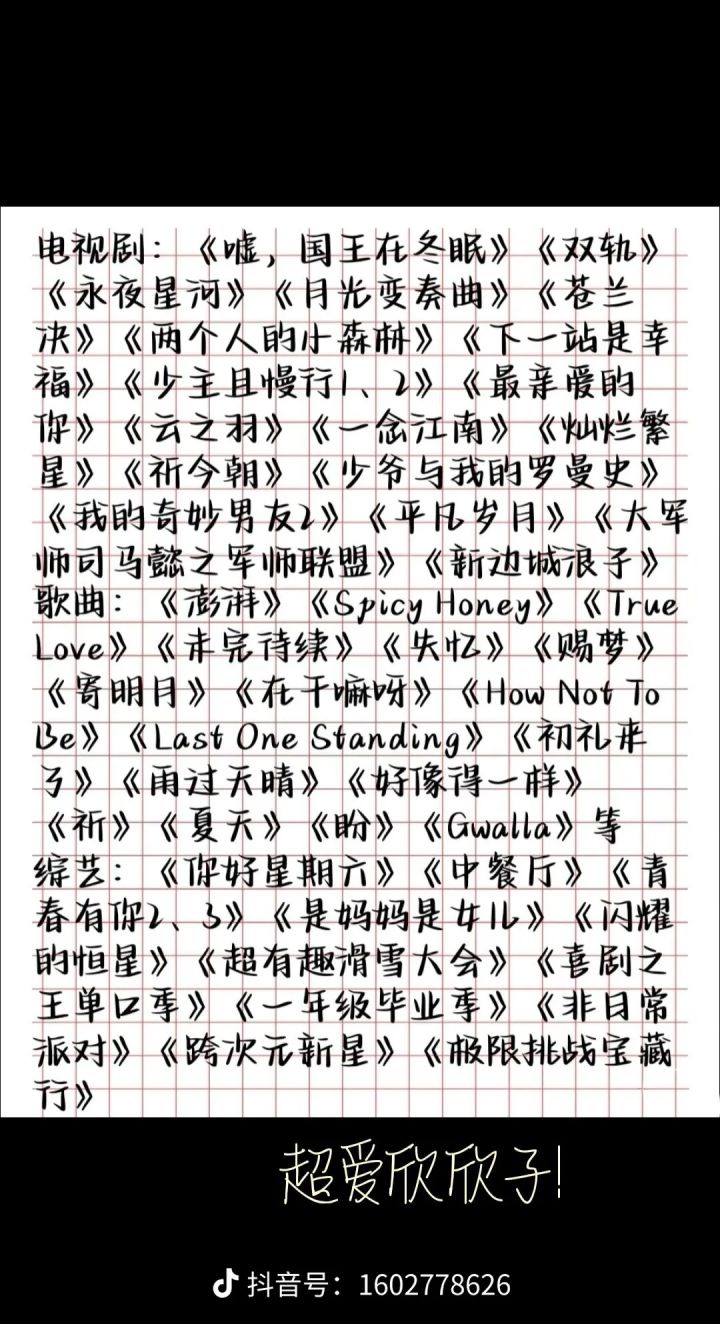 电视剧：《嘘，国王在冬眠》《双轨》
《永夜星河》《月光变奏曲》《苍兰
决》《两个人的小森林》《下一站是幸
福》《少主且慢行1、2》《最亲爱的
你》《云之羽》《一念江南》《灿烂繁
星》《祈今朝》《少爷与我的罗曼史》
《我的奇妙男友2》《平凡岁月》《大军
师司马懿之军师联盟》《新边城浪子》
歌曲：《澎湃》《Spicy Honey》《True
Love》《未完待续》《失忆》《赐梦》
《寄明月》《在干嘛呀》《How Not To
Be》《Last One Standing》《初礼来
了》《雨过天晴》《好像得一样》
《祈》《夏天》《盼》《Gwalla》等
综艺：《你好星期六》《中餐厅》《青
春有你2、3》《是妈妈是女儿》《闪耀
的恒星》《超有趣滑雪大会》《喜剧之
王单口季》《一年级毕业季》《非日常
派对》《跨次元新星》《极限挑战宝藏
行》
超爱欣欣子！
抖音号：1602778626